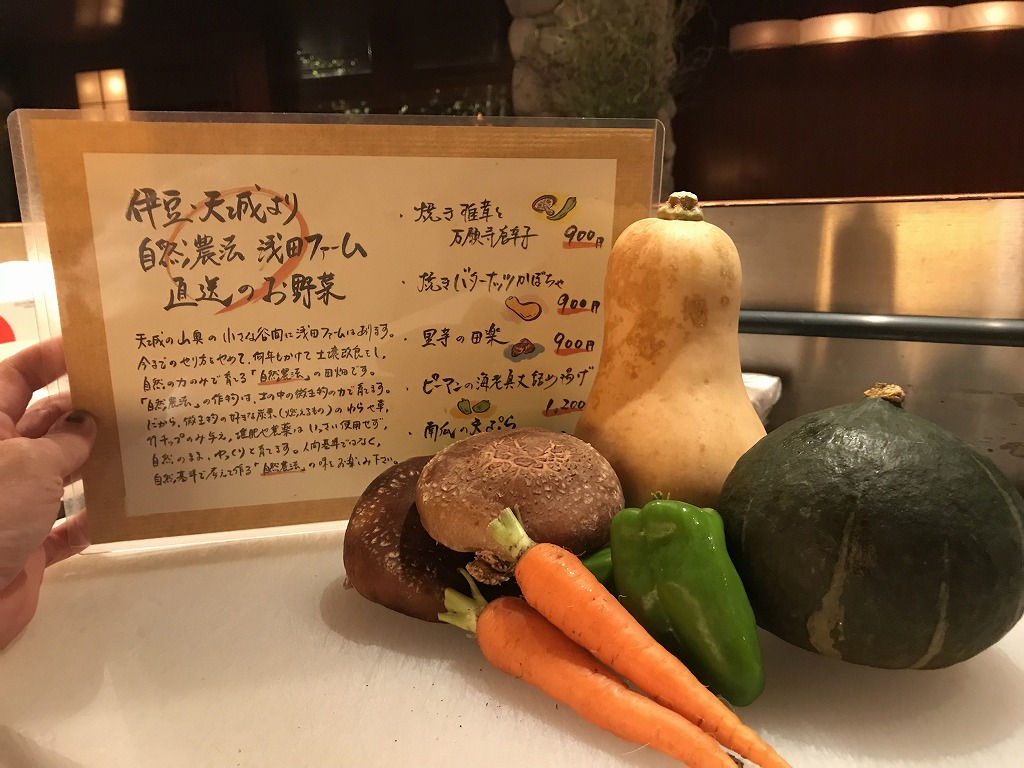 伊豆・天城より
自然農法 浅田ファーム
直送のお野菜
天城の山奥の小さな谷間に浅田ファームはあります。
今までのやり方をやめて、何年もかけて土壌改良をし、
自然の力のみで育てる「自然農法」の田畑です。
「自然農法」の作物は、土の中の微生物の力で育てます。
だから、微生物の好きな炭素(燃えるもの)のわらや草、
竹チップのみ与え、堆肥や農薬はいっさい使用せず、
自然のまま、ゆっくりと育てます。人間基準ではなく、
自然基準で考えて作る「自然農法」の味をお楽しみ下さい。
・焼き椎茸と
万願寺唐辛子 900円
・焼きバターナッツかぼちゃ
900円
・里芋の田楽 900円
・ピーマンの海老真丈詰め揚げ
1,200
・南瓜の天ぷら